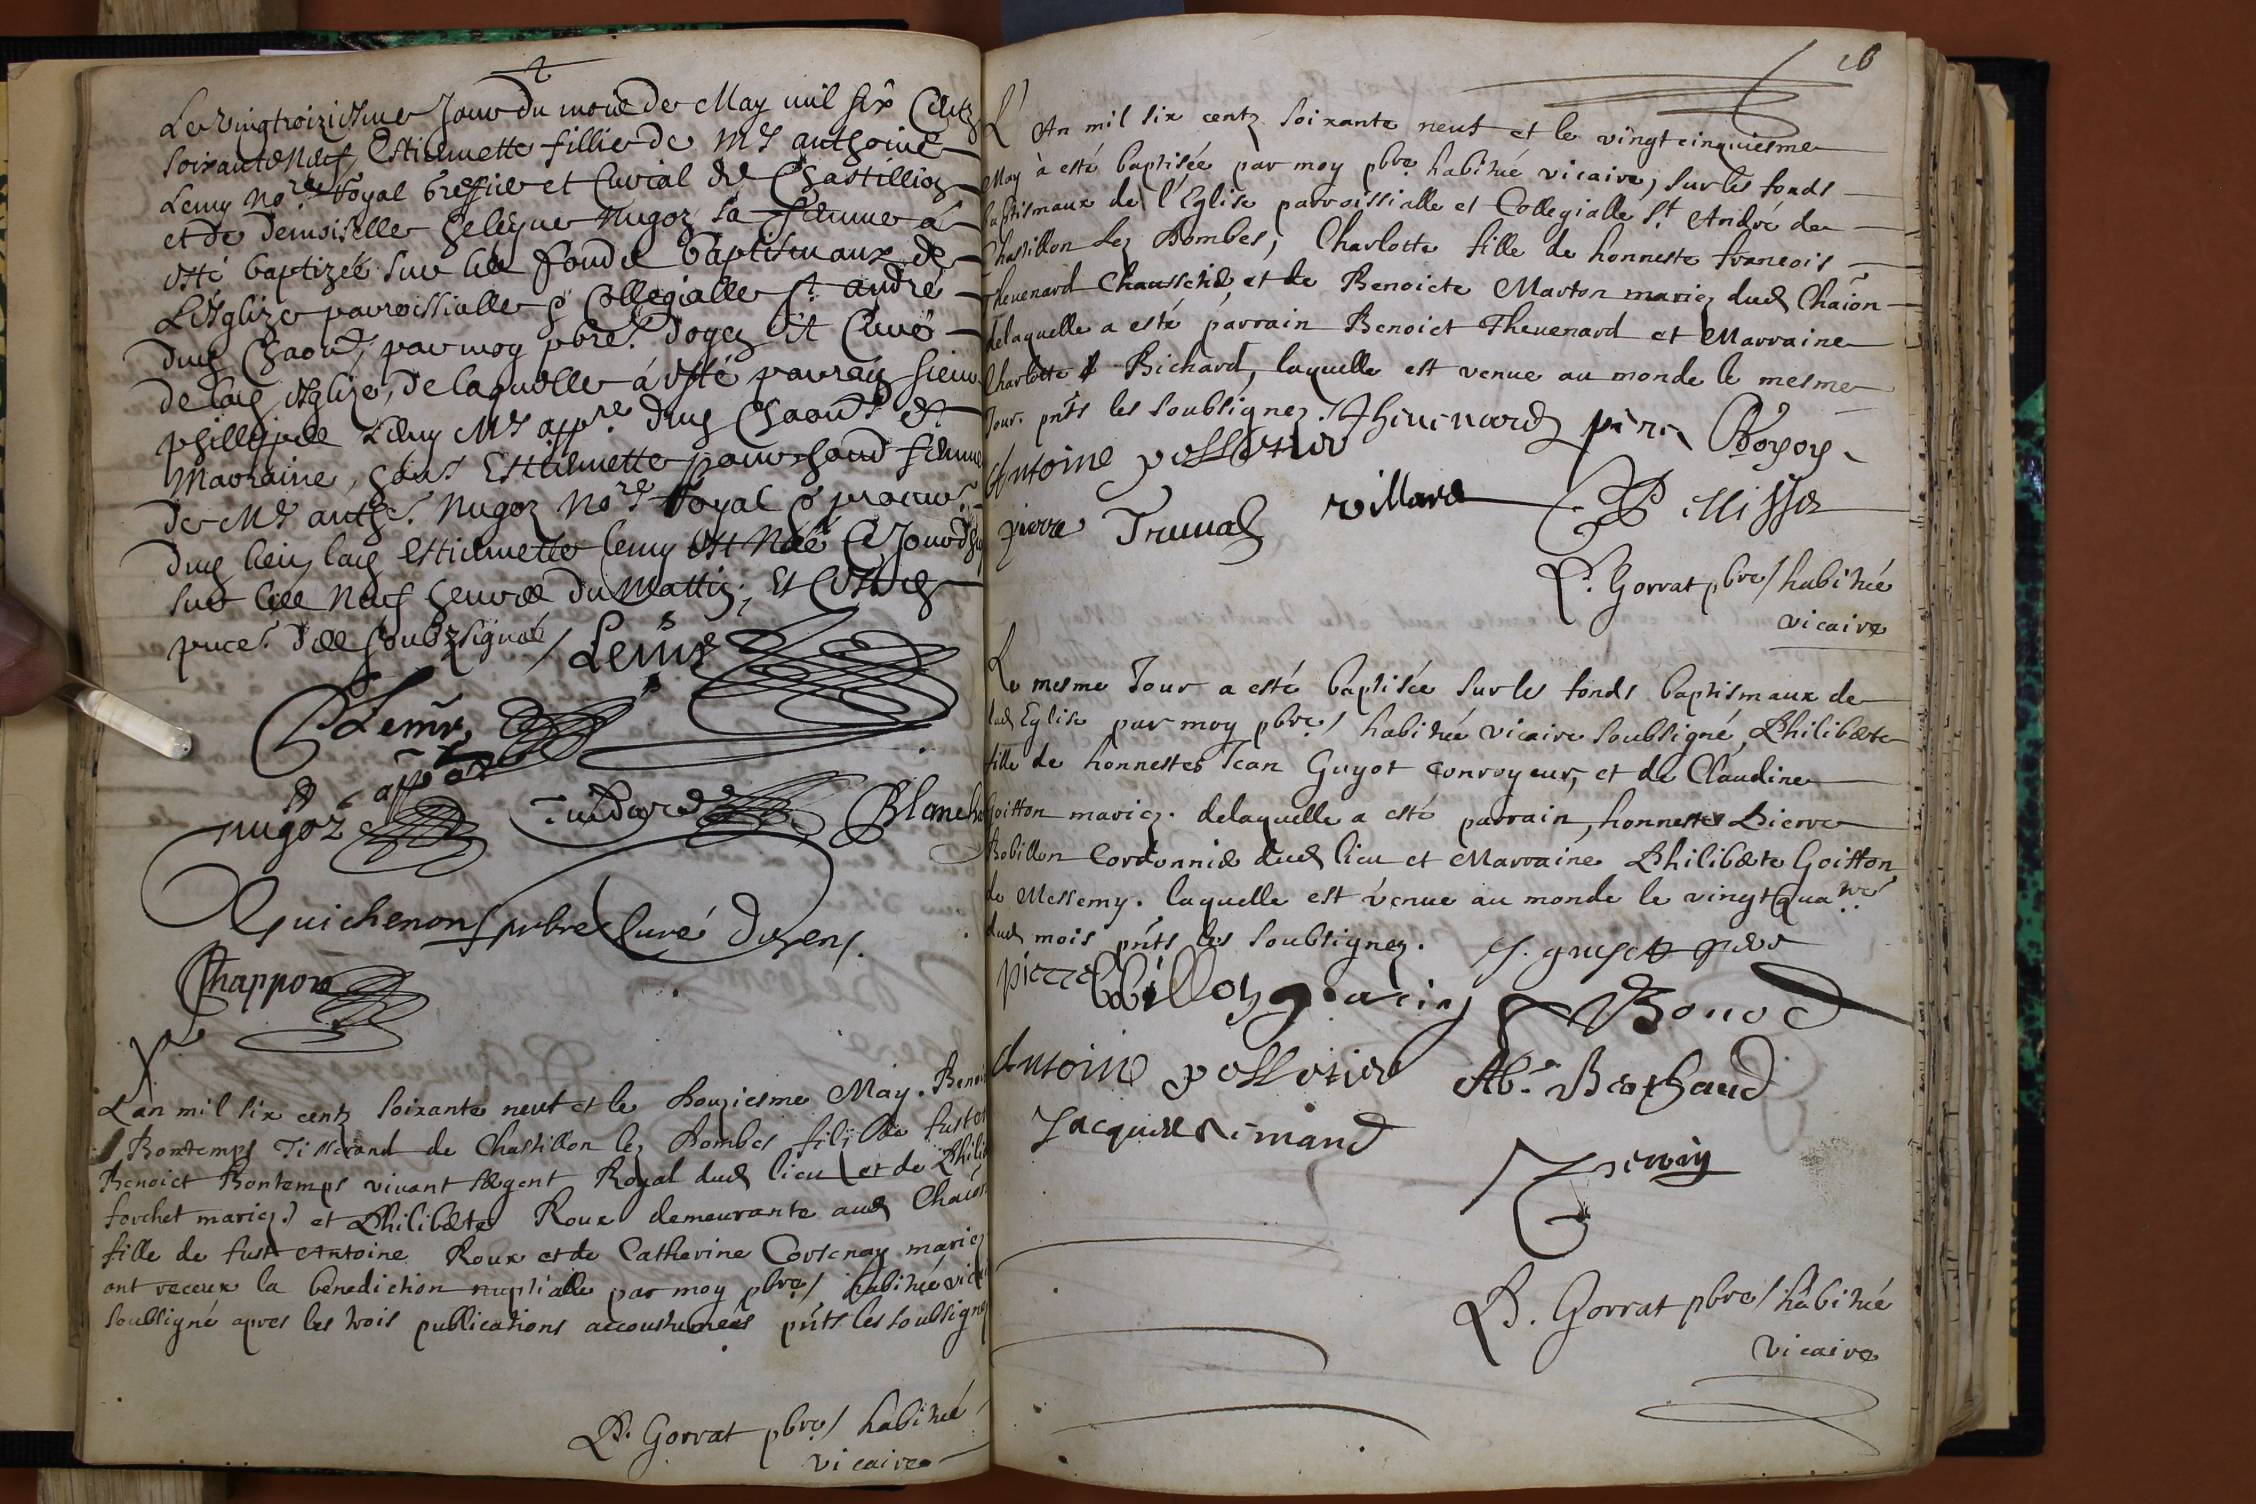 Le vingtroiziesme Jour du mois de May mil six Centz
soixante Neuf, Estiennette fillie de Mre anthoine
Lemy Nore Royal Greffier et Curial de Chastillion
et de demoiselle helegne Nugoz sa femme a
esté baptizée sur les fonds baptismaux de
L'Esglize parroissialle & Collegialle St andré
dud Chaon, par moy pbre doyen et Curé
de lad Esglize, de laquelle a esté parrain sieur
phillippe Lemy Me appre dud Chaon et
Marraine, hon. Estiennette femme
de Me anthe Nugoz Nore Royal & procur
dud lieu, lad Estiennette Lemy est Née Ce Jourdhuy
sur les Neuf heures du Mattin, Et Ce en
prnce des soubzsignés / Lemy
P Lemy,
appre
Nugoz Blanch
Guichenon pbre Curé doyen.
Chappon
L'an mil six centz soixante neuf et le douziesme May. Benoi
Bontemps Tisserand de Chastillon lez Dombes filz de fust
Benoict Bontemps vivant sergent Royal dud lieu et de Philib
forchet mariez, et Philiberte Roux demeurante aud Chaon
fille de fust Antoine Roux et de Catherine Cortenay mariez
ont receux la benediction nuptialle par moy pbre / habitué vic
soubsigné apres les trois publications accoustumées pnts les soubsigne
P. Gorrat pbre / habitué
vicaire
L'An mil six centz soixante neuf et le vingtcinquiesme
May à esté baptisée par moy pbre habitué vicaire, sur les fonds
baptismaux de l'Eglise parroissialle et Collegialle St André de
Chastillon lez Dombes, Charlotte fille de honneste francois
Thevenard Chausseti et de Benoicte Marton mariez dud Chaon
delaquelle a esté parrain Benoict Thevenard et Marraine
Charlotte Bichard, laquelle est venue au monde le mesme
Jour. pnts les soubsignez. Thevenard pere
Antoine pelletier
pierre villard
P. Gorrat pbre / habitué
vicaire
Le mesme Jour a esté baptisée sur les fonds baptismaux de
lad Eglise par moy pbre / habitué vicaire soubsigné, Philiberte
fille de honnestes Jean Guyot convoyeur, et de Claudine
Goitton mariez. delaquelle a esté parrain, honneste Pierre
Robillon Cordonnie dud lieu et Marraine Philiberte Goitton
de Messemy. laquelle est venue au monde le vingtquatre
dud mois pnts les soubsignez.
pierre
Antoine pelletier
P. Gorrat pbre / habitué
vicaire